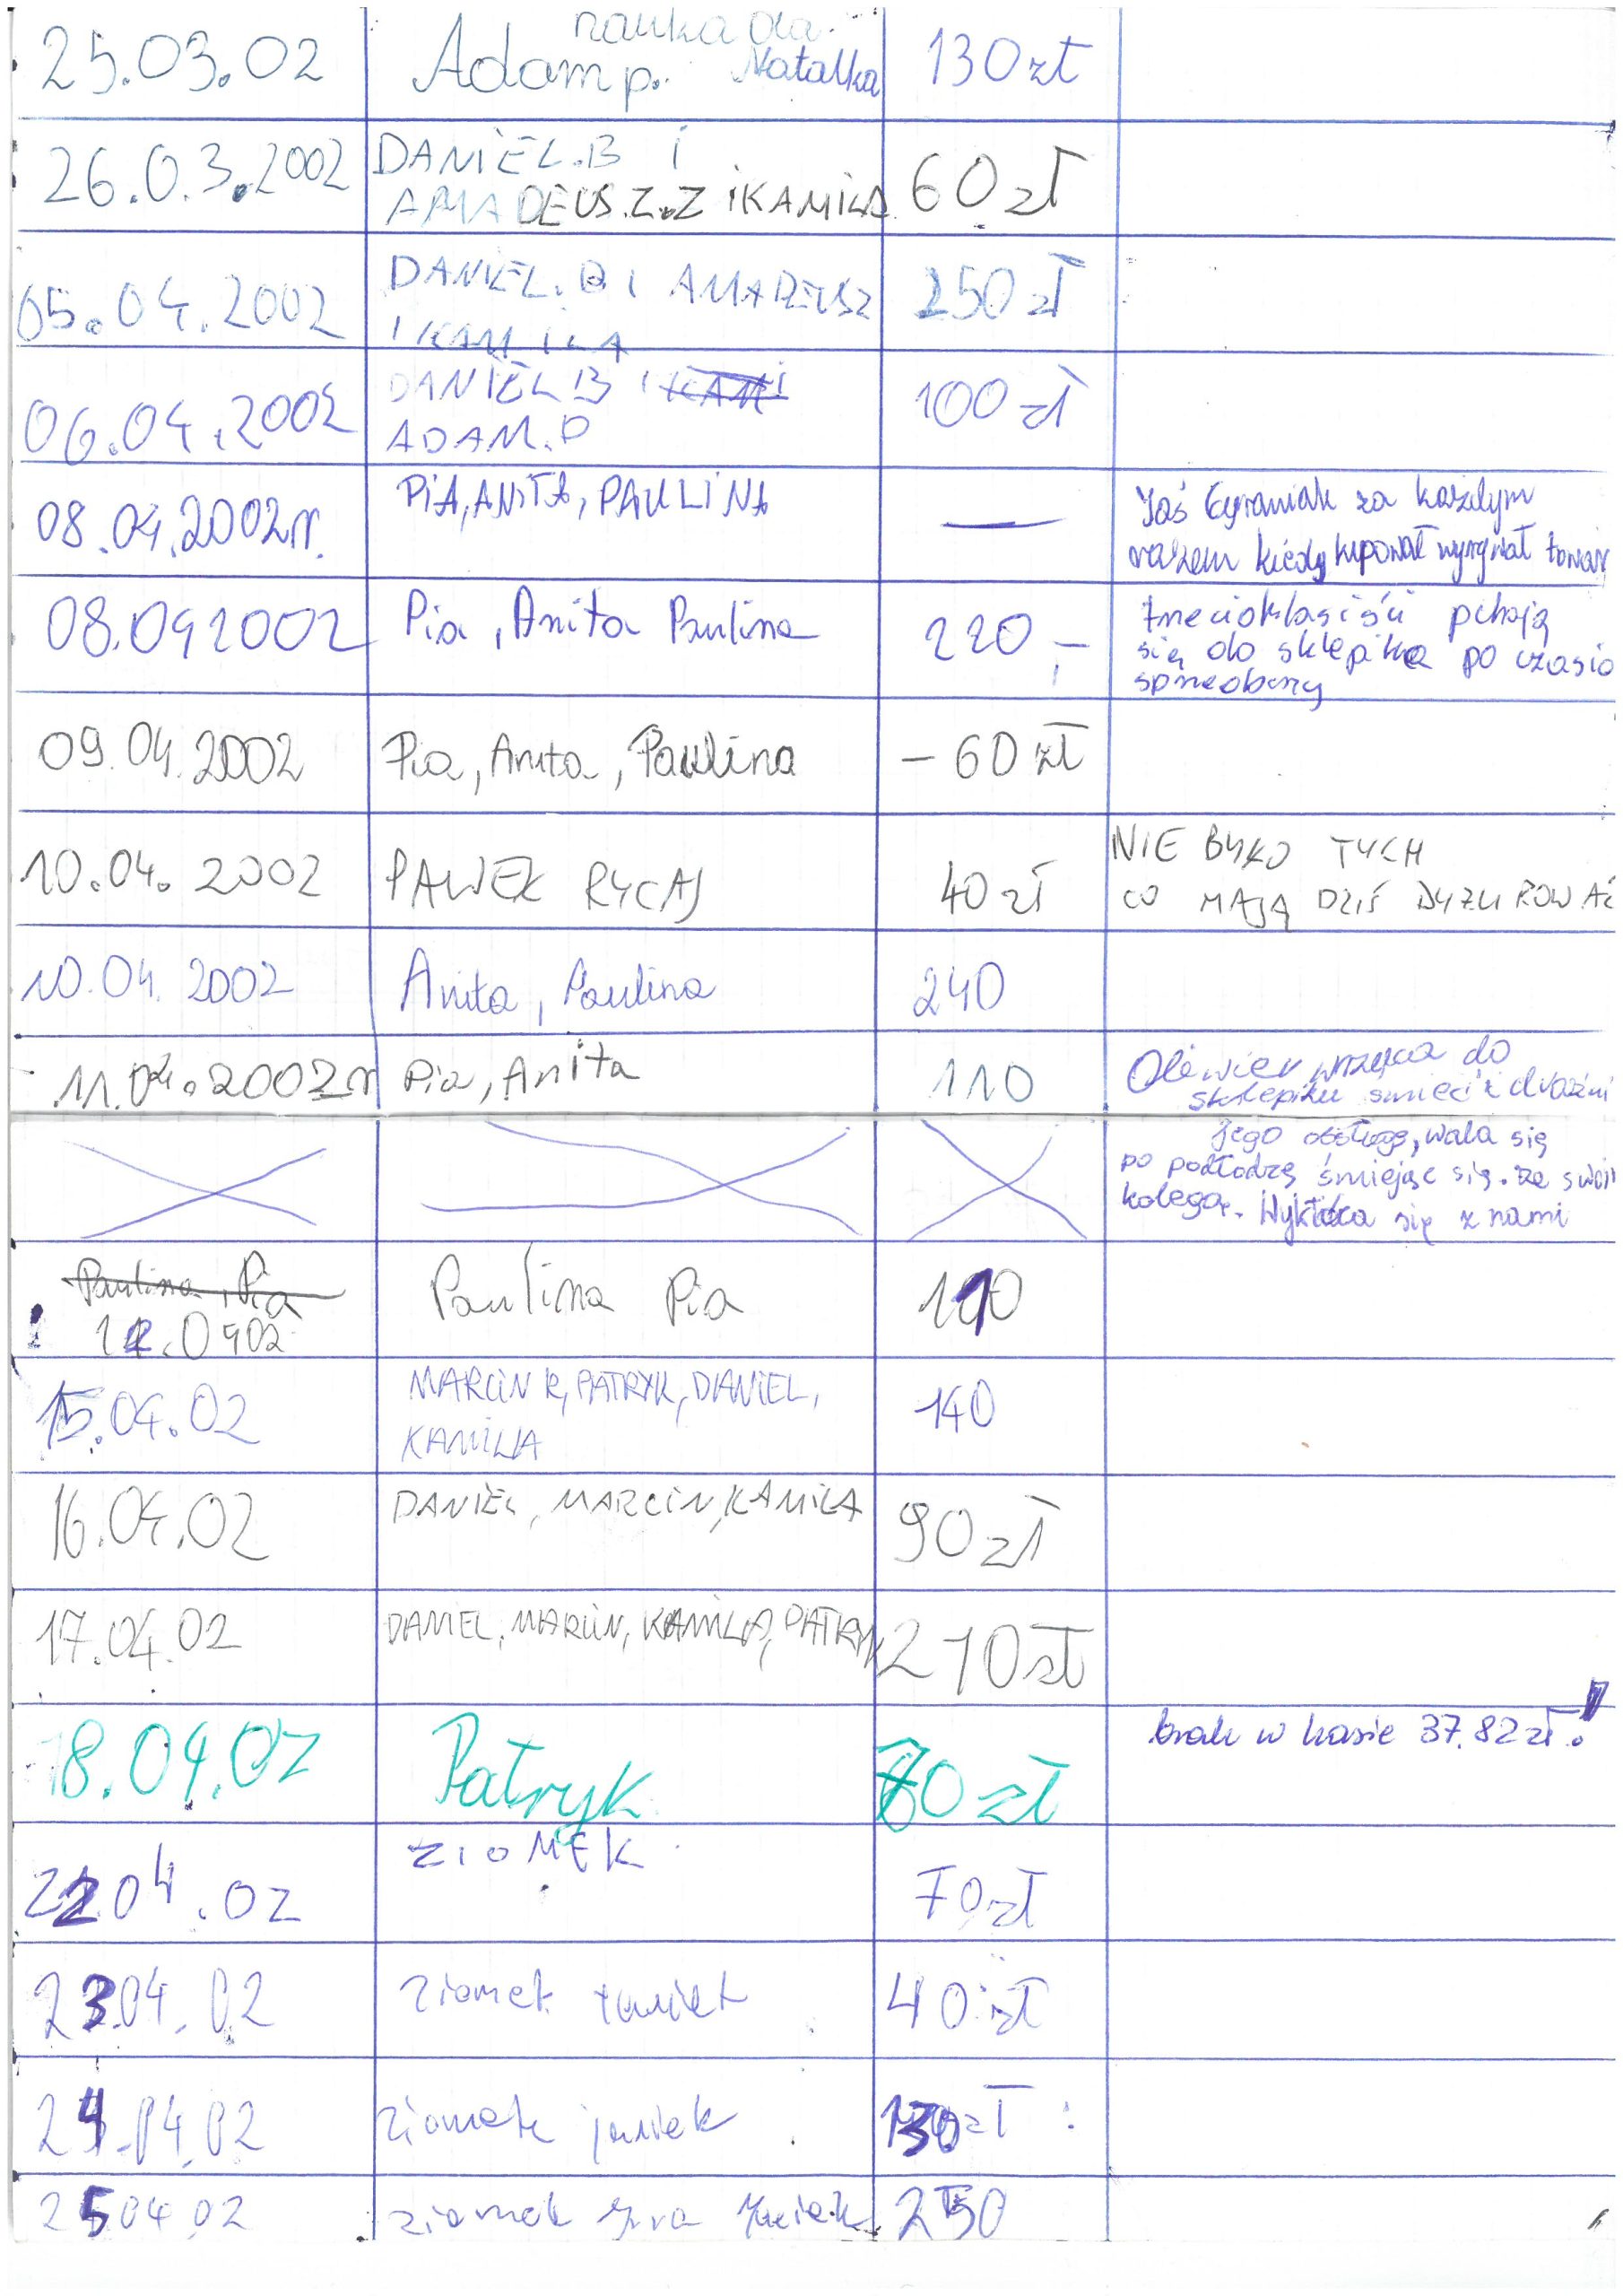 nauka dla
25.03.02 Adam p. Natalka 130 zł
26.0.3.2002 DANIEL.B i
AMADEUS.Z.Z i KAMILA 60 zł
05.04.2002 DANIEL.B i AMADEUSZ 250 zł
i KAMILA
06.04.2002 DANIEL B i KAMI 100 zł
ADAM.P
08.04.2002r. PIA, ANITA, PAULINA — Jaś za każdym
razem kiedy kupował towar
08.042002 Pia, Anita Paulina 220,- trzecioklasiści pchają
się do sklepika po czasie
sprzedaży
09.04.2002 Pia, Anita, Paulina – 60 zł
10.04.2002 PAWEŁ RYCAJ 40 zł NIE BYŁO TYCH
CO MAJĄ DZIŚ DYŻUROWAĆ
10.04.2002 Anita, Paulina 240
11.04.2002r Pia, Anita 110 Oliwier wrzuca do
sklepiku śmieci i drażni
jego obsługę, wala się
po podłodze śmiejąc się ze swoim
kolegą. Wykłóca się z nami
Paulina, Pia
12.0402 Paulina Pia 110
15.04.02 MARCIN R, PATRYK, DANIEL, 140
KAMILA
16.04.02 DANIEL, MARCIN, KAMILA 90 zł
17.04.02 DANIEL, MARCIN, KAMILA, PATRYK 210 zł
18.04.02 Patryk 80 zł brak w kasie 37.82 zł.!
2204.02 ZIOMEK 70 zł
2304.02 Ziomek 40 zł
24.04.02 Ziomek juniek 130 zł
2504.02 ziomek 250